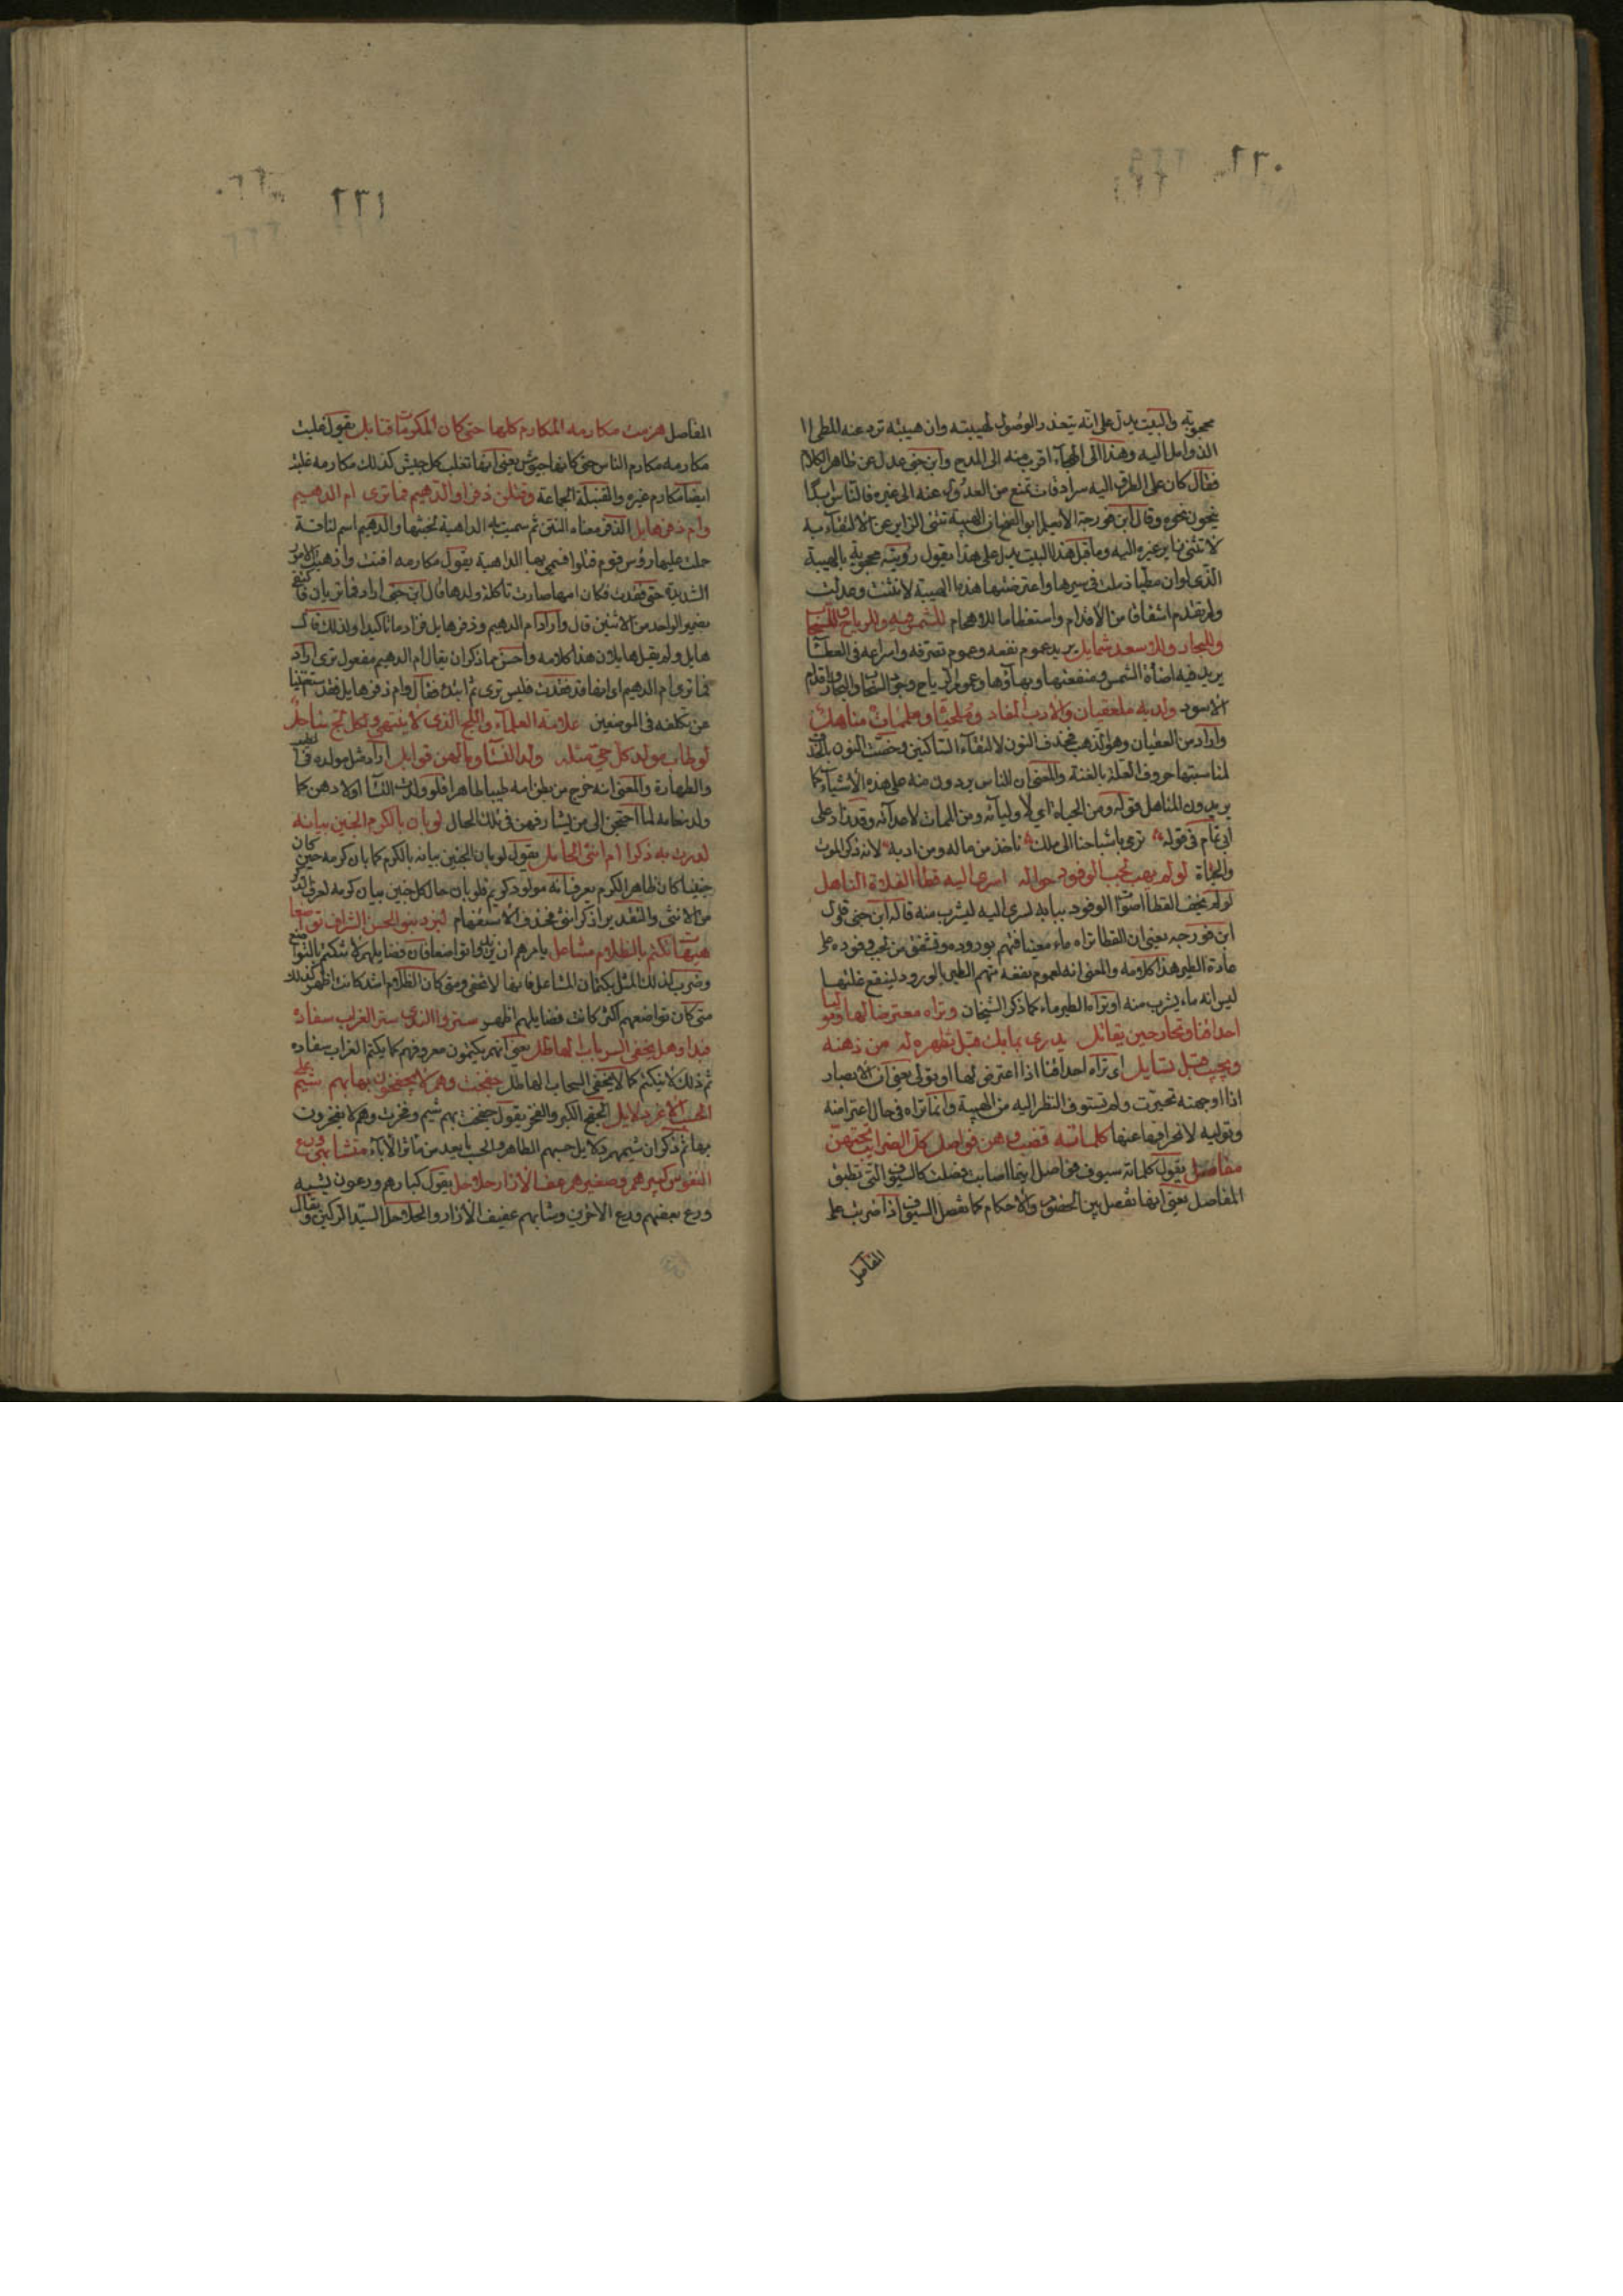 ٢٦٠
محجوبة والبيت يدل على انه يتعذر الوصول لهيبته وان هيبته ترد عنه المطي
الذوامل اليه وهذا الى الهجاء اقرب منه الى المدح وابن جنى عدل عن ظاهر الكلام
فقال كان على الطرق اليه سرادقات تمنع من العدول عنه الى غيره فالناس ابدا
ينحون نحوه وقال ابن فورجة
لا تنثنى عن غيره اليه وما قبل هذا البيت يدل على هذا يقول رويته محجوبة بالهيبة
التى لو ان مطيا ذملت فى سيرها واعترضتها هذه الهيبة لانثنت وعدلت
ولم تقدم اشفاقا من الاقدام واستعظاما للاهجام للشمس فيه وللرياح وللسحاب
وللبحار وللاسود شمايل يريد عموم نفعه وعموم تصرفه واسراعه فى العطا
يريد فيه اضأة الشمس ومنفعتها وبهاؤها وعموم الرياح وجود السحاب والبحار واقدام
الاسود ولديه ملعقيان والادب المفاد وملحياة وملممات مناهل
واراد من العقيان وهو الذهب فحذف النون لالتقاء الساكنين وخصت النون بالحذف
لمناسبتها حروف العلة بالغنة والمعنى ان الناس يردون منه على هذه الاشياء كما
يريدون المناهل وقوله ومن الحياة اي لاوليائه ومن الممات لاعدائه وقد زاد على
ابى تمام فى قوله ترمى باشباحنا الى ملك ناخذ من ماله ومن ادبه لانه ذكر الموت
والحياة لو لم يهب لجب الوفود حواله اسرى اليه قطا الفلاة الناهل
لو لم يخف القطا اصوات الوفود ببابه لسرى اليه ليشرب منه قاله ابن جنى وقول
ابن فورجه يعنى ان القطا تراه ماء معينا فتهم بوروده وتشفق من لجب وفوده على
عادة الطير هذا كلامه والمعنى انه لعموم نفعه تهم الطير بالورود لينقع غلتها
ليس انه ماء يشرب منه او تراه الطير ماء كما ذكر الشيخان وتراه معترضا لها وموليا
احداقنا وتحار حين يقابل يدرى بما بك قبل تظهره له من ذهنه
ويجيب قبل تسايل اى تراه احداقنا اذا اعترض لها او تولى يعنى ان الابصار
اذا اوجهته تحيرت ولم تستوف النظر اليه من الهيبة وانما تراه فى حال اعتراضه
وتوليه لانحرافها عنها كلماته قضب وهن فواصل كل الضرايب تحتهن
مفاصل يقول كلماته سيوف فواصل اينما اصابت فصلت كالسيوف التى تطبق
المفاصل يعنى انها تفصل بين الخصوم والاحكام كما تفصل السيوف اذا ضربت على
المفاصل
٢٦١
المفاصل هزمت مكارمه المكارم كلها حتى كان المكرمات قنابل يقول غلبت
مكارمه مكارم الناس حتى كانها جيوش يعنى انها تغلب كل جيش كذلك مكارمه غلبت
ايضا مكارم غيره والقنبلة الجماعة وقتلن دفرا والدهيم فما ترى ام الدهيم
وام دفر هابل الدفر معناه النتن ثم سميت به الداهية لخبثها والدهيم اسم لناقة
حملت عليها رؤس قوم قتلوا فسمى بها الداهية يقول مكارمه افنت واذهبت الامور
الشديدة حتى فقدت فكان امها صارت ثاكلة ولدها قال ابن جنى اراد فما تريان فاكتفى
بضمير الواحد من الاثنين قال واراد ام الدهيم ودفر هابل فزاد ما تاكيدا ولذلك قال
هابل ولم يقل هابلان هذا كلامه واحسن مما ذكر ان يقال ام الدهيم مفعول ترى اراد
فما ترى ام الدهيم اى انها قد فقدت فليس ترى ثم ابتدا فقال وام دفر هابل فقد استغنينا
عن تكلفه فى الموضعين علامة العلماء واللج الذى لا ينتهى ولكل لج ساحل
لو طاب مولد كل حي مثله ولد النساء وما لهن قوابل اراد مثل مولده فى الطيب
والطهارة والمعنى انه خرج من بطن امه طيبا طاهرا فلو ولدت النسا اولادهن كما
ولد هذا لما احتجن الى من يشارفهن فى تلك الحال لو بان بالكرم الجنين بيانه
لدرت به ذكرا ام انثى الحامل يقول لو بان الجنين بيانه بالكرم كما بان كرمه حين كان
جنينا كان ظاهر الكرم يعرف انه مولود كريم فلو بان حال كل جنين بيان كرمه لعرف الذكر
من الانثى والتقدير اذكرا انثى فحذف الاستفهام ليزد بنو الحسن الشراف تواضعا
هيهات تكتم بالظلام مشاعل يامرهم ان يزيدوا تواضعا فان فضايلهم لا تنكتم بالتواضع
وضرب لذلك المثل بكتمان المشاعل فانها لا تخفى ومتى كان الظلام اشد كانت اظهر كذلك
متى كان تواضعهم اكثر كانت فضايلهم اظهر ستروا الندى ستر الغراب سفاده
فبدا وهل يخفى السرباب الهاطل يعنى انهم يكتمون معروفهم كما يكتم الغراب سفاده
ثم ذلك لا ينكتم كما لا يخفى السحاب الهاطل جفخت وهم لا يجفخون بها بهم شيم على
الحسب الاغر دلايل الجفخ الكبر والفخر يقول جفخت بهم شيم وفخرت وهم لا يفخرون
بها ثم ذكر ان شيمهم دلايل حسبهم الطاهر والحسب ما يعد من مآثر الاباء متشابهى ورع
النفوس كبيرهم وصغيرهم عف الازار حلاحل يقول كبارهم ورعون يشبه
ورع بعضهم ورع الاخرين وشابهم عفيف الازار والحلاحل السيد الركين ويقال